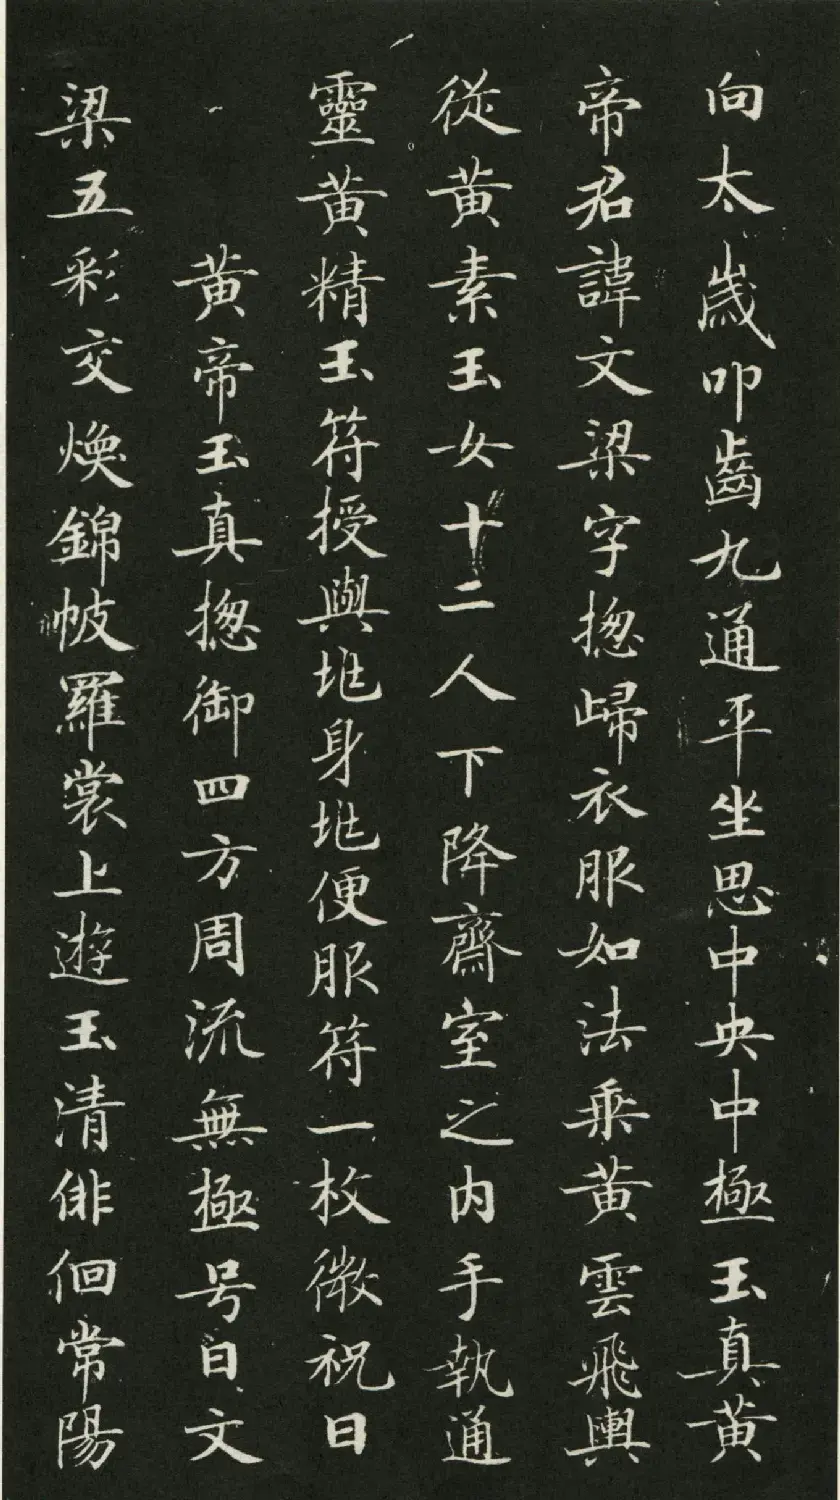 向太歲叩齒九通平坐思中央中極玉真黄
帝君諱文梁字揔歸衣服如法乘黄雲飛輿
從黄素玉女十二人下降齋室之内手執通
靈黄精玉符授與地身地便服符一枚微祝曰
黄帝玉真揔御四方周流無極号曰文
梁五彩交煥錦帔羅裳上遊玉清俳佪常陽